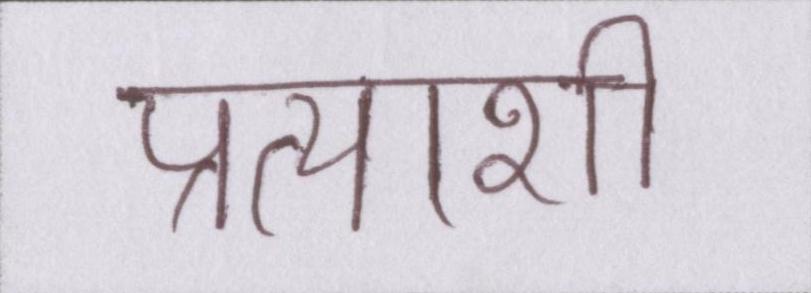 प्रत्याशी